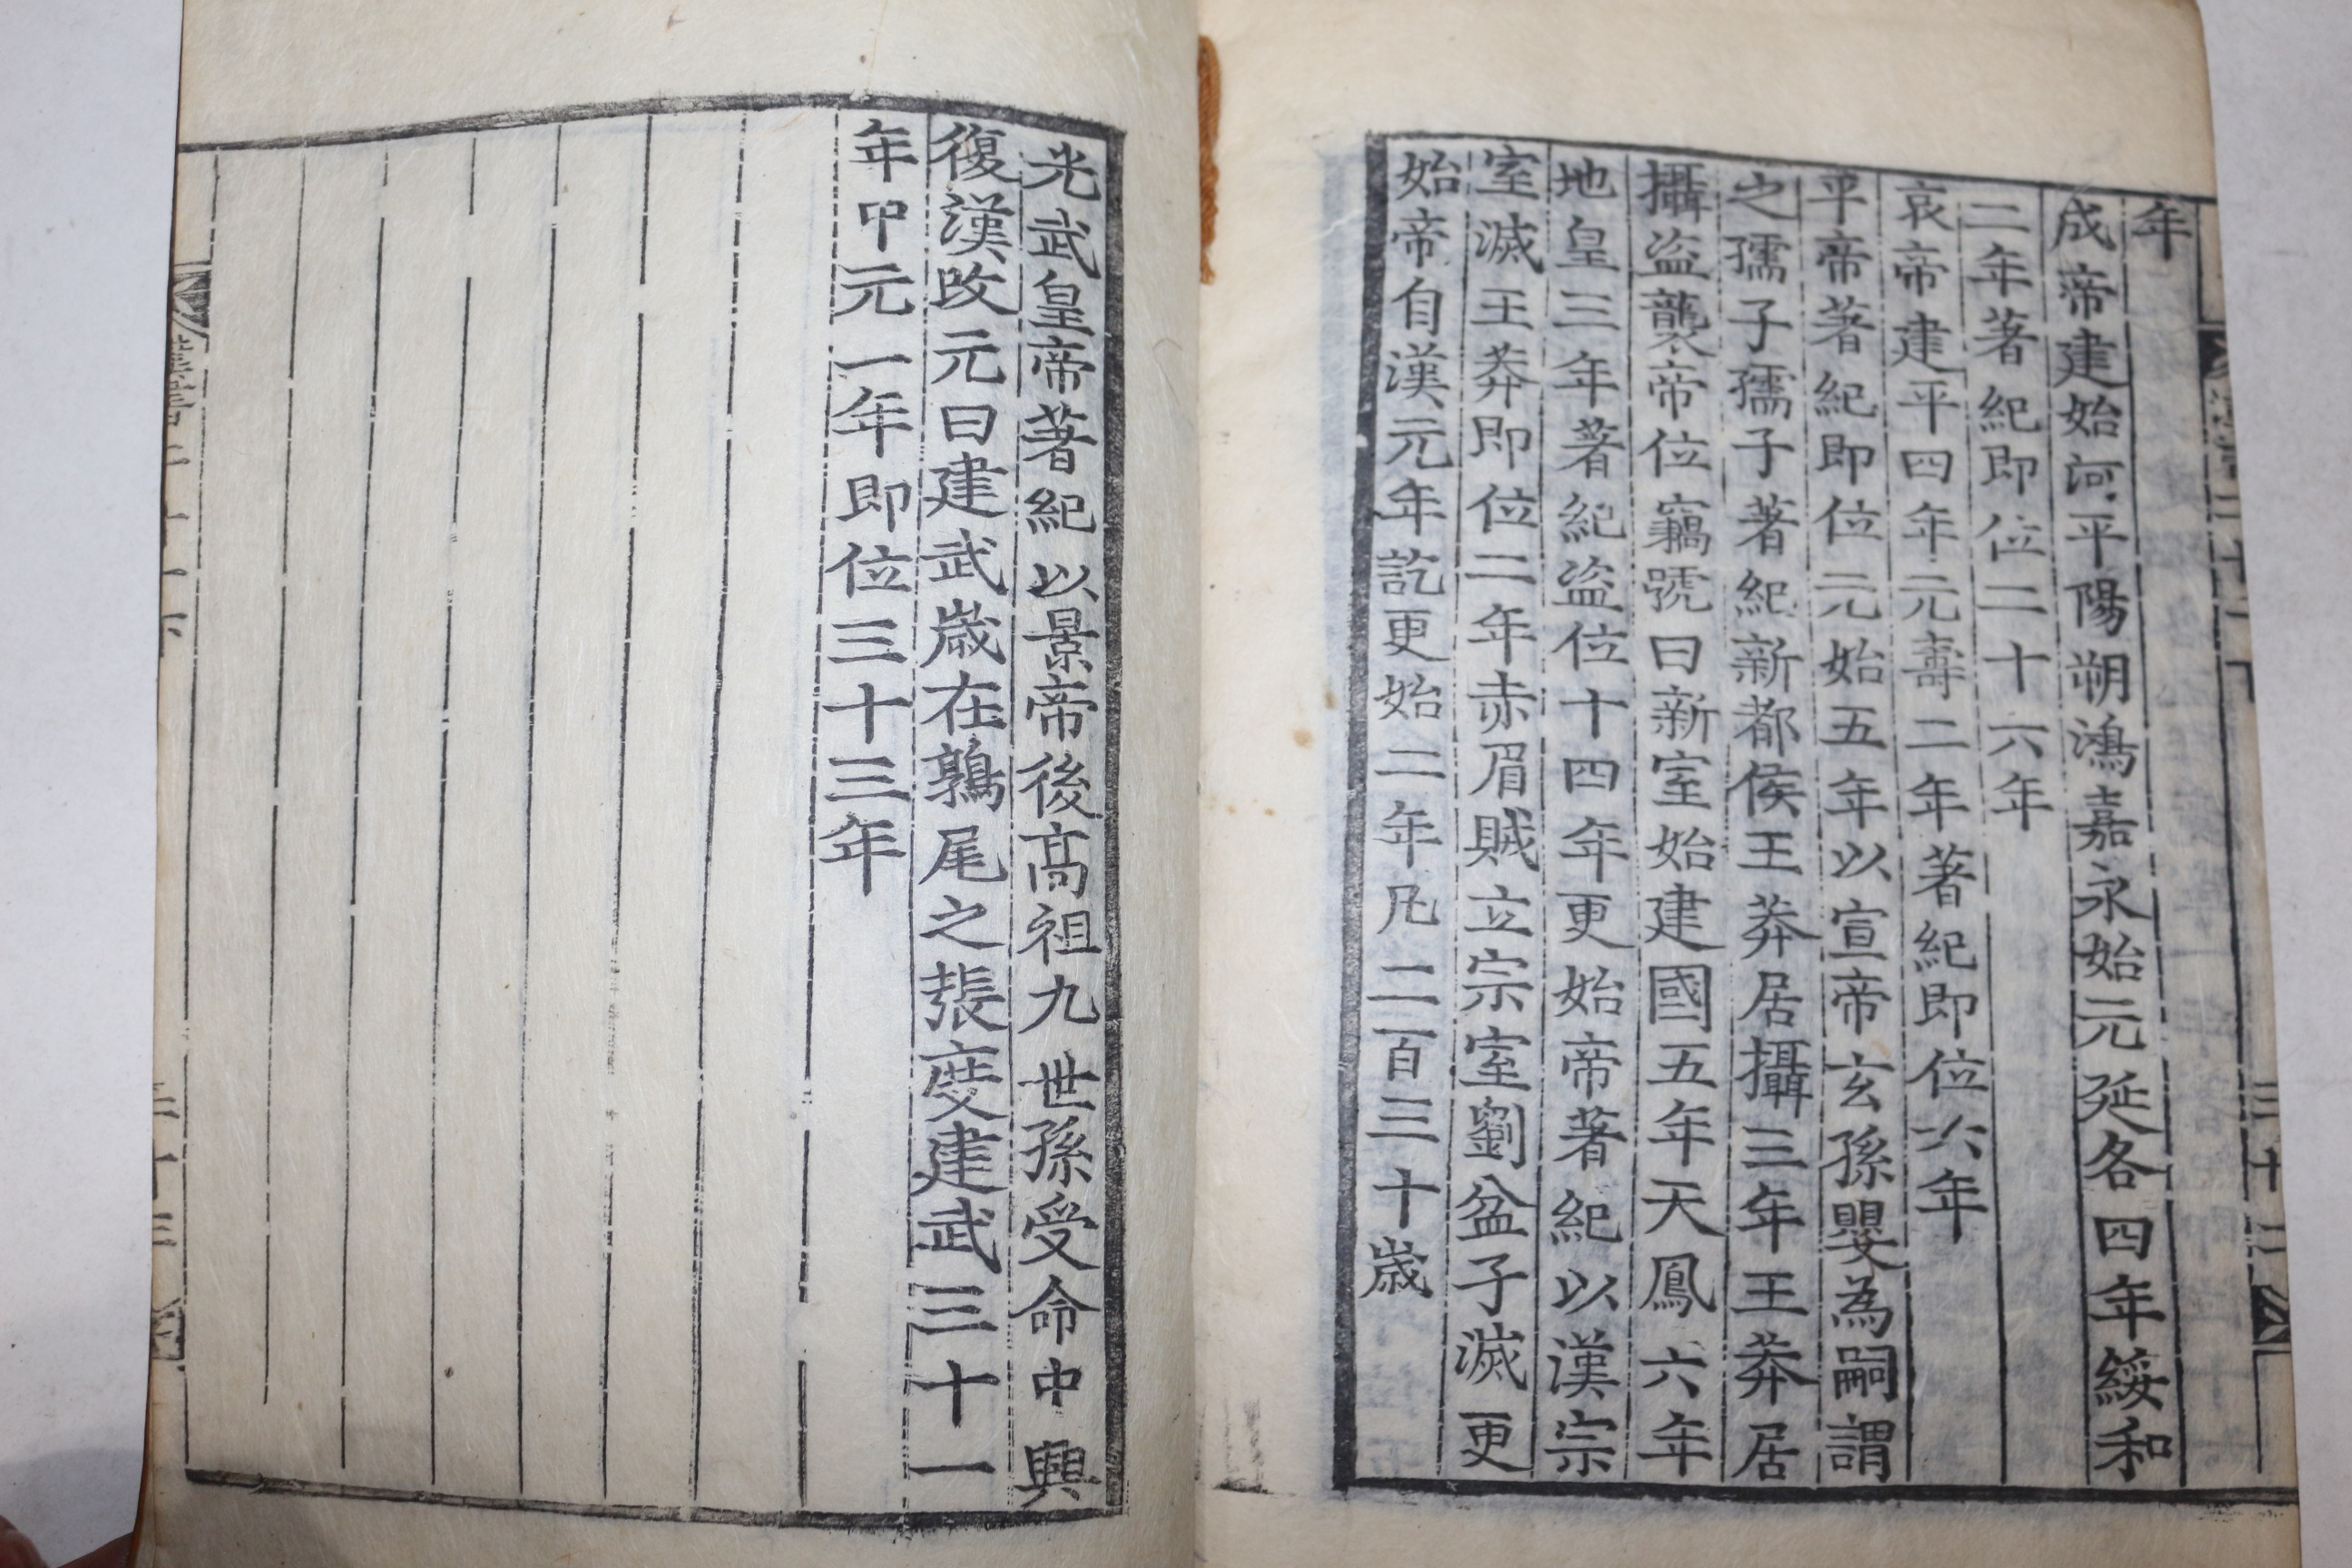 年
成帝建始河平陽朔鴻嘉永始元延各四年綏和
二年著紀即位二十六年
哀帝建平四年元壽二年著紀即位六年
平帝著紀即位元始五年以宣帝玄孫嬰為嗣謂
之孺子孺子著紀新都侯王莽居攝三年王莽居
攝盜襲帝位竊號曰新室始建國五年天鳳六年
地皇三年著紀盜位十四年更始帝著紀以漢宗
室滅王莽即位二年赤眉賊立宗室劉盆子滅更
始帝自漢元年訖更始二年凡二百三十歲
光武皇帝著紀以景帝後高祖九世孫受命中興
復漢改元曰建武歲在鶉尾之張度建武三十一
年中元一年即位三十三年
漢書二十一下
三十三